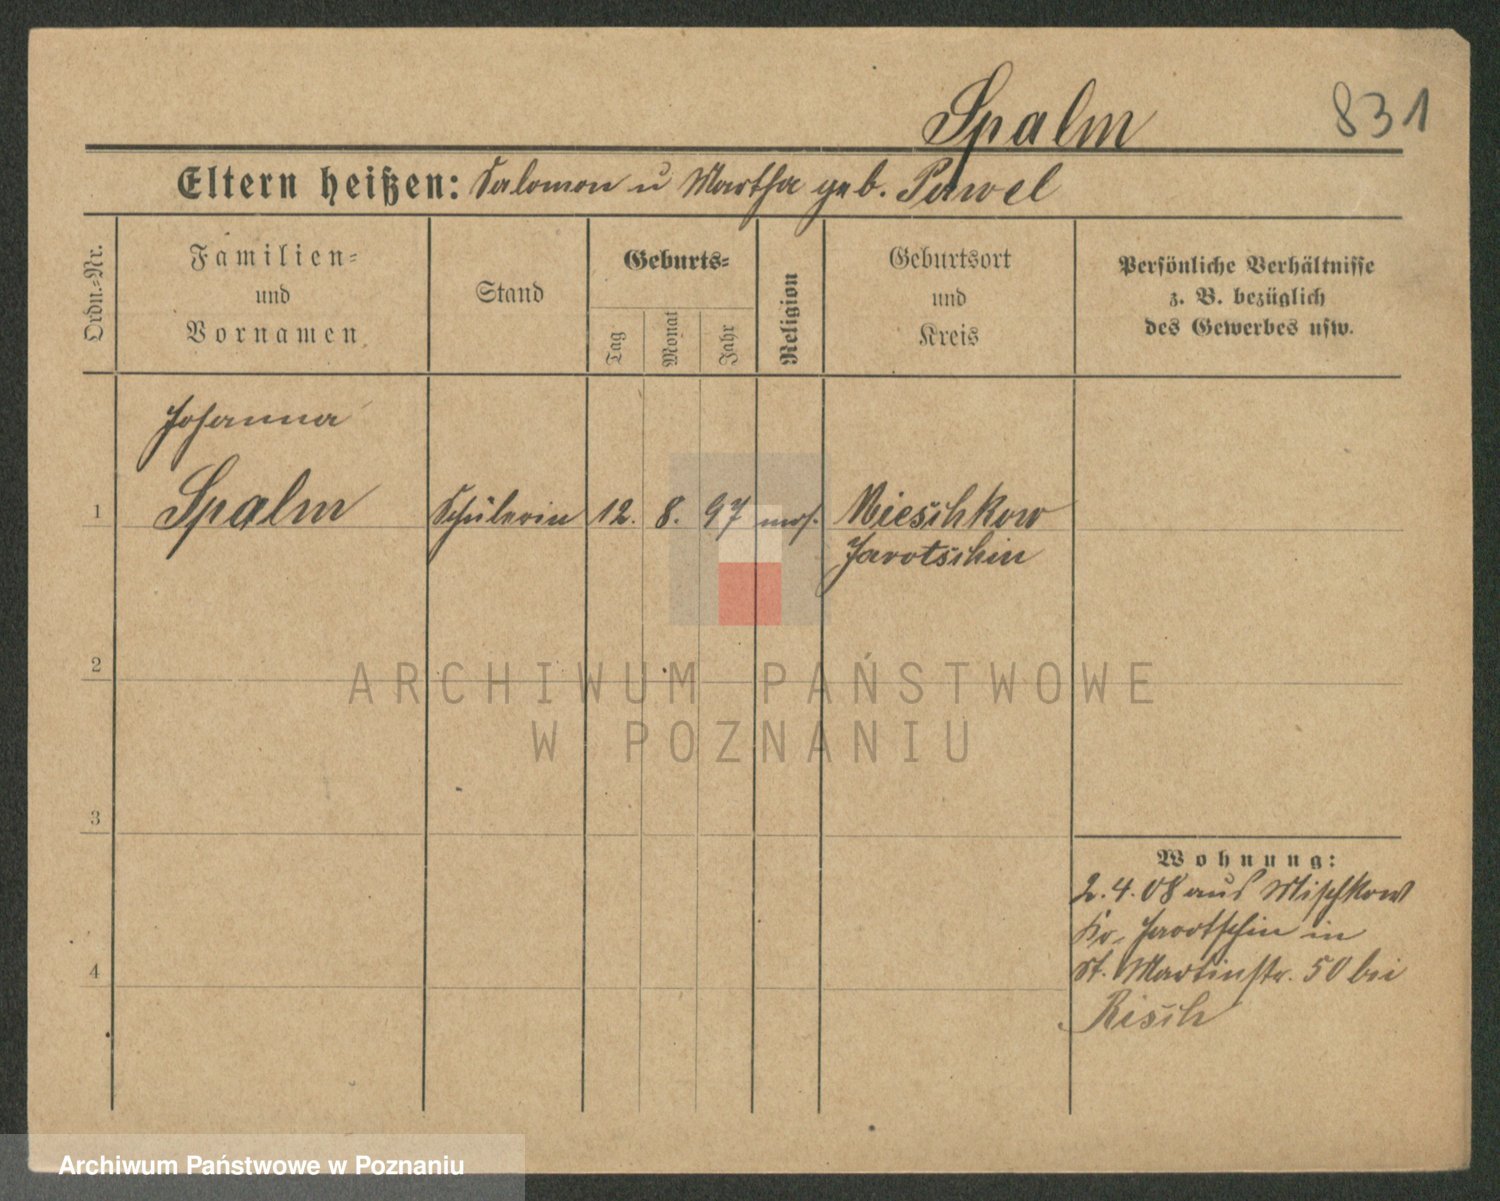 Spalm 831
Eltern heißen: Salomon u Martha geb. Pawel
Ordn.-Nr.
Familien-
und
Vornamen
Stand
Geburts-
Tag
Monat
Jahr
Religion
Geburtsort
und
Kreis
Persönliche Verhältnisse
z. B. bezüglich
des Gewerbes usw.
Johanna
1 Spalm Schülerin 12. 8. 97 mos. Mieschkow
Jarotschin
ARCHIWUM PAŃSTWOWE
W POZNANIU
2
3
4
Wohnung:
2.4.08 aus Mischkow
Kr. Jarotschin in
St. Martinstr. 50 bei
Risch
Archiwum Państwowe w Poznaniu